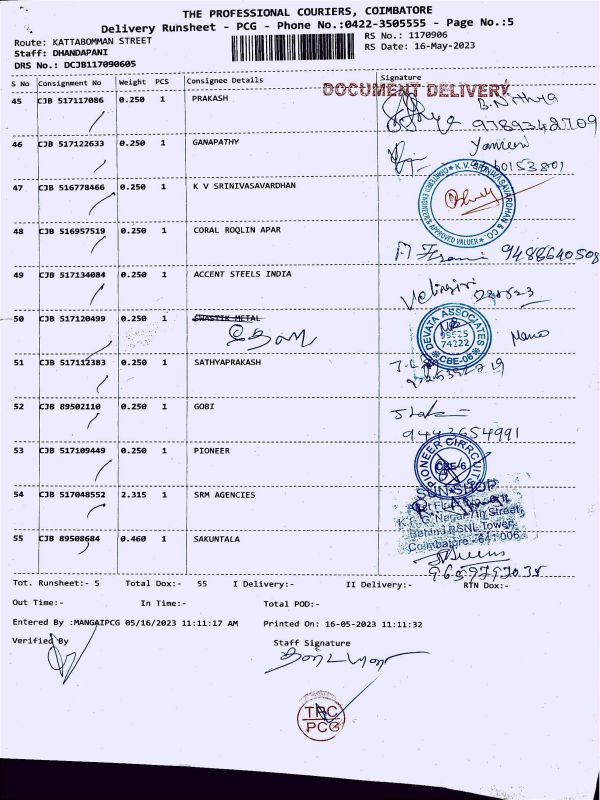 THE PROFESSIONAL COURIERS, COIMBATORE
Delivery Runsheet - PCG - Phone No.:0422-3505555 - Page No.:5
Route: KATTABOMMAN STREET
RS No.: 1170906
Staff: DHANDAPANI
RS Date: 16-May-2023
DRS No.: DCJB117090605
S No Consignment No Weight PCS Consignee Details Signature
DOCUMENT DELIVERY
45 CJB 517117086 0.250 1 PRAKASH B.Nithya
9789342709
46 CJB 517122633 0.250 1 GANAPATHY
47 CJB 516778466 0.250 1 K V SRINIVASAVARDHAN
K.V. SRINIVASAVARDHAN & CO.
CHARTERED ENGINEER & APPROVED VALUER
48 CJB 516957519 0.250 1 CORAL ROQLIN APAR
9488640508
49 CJB 517134084 0.250 1 ACCENT STELS INDIA
50 CJB 517120499 0.250 1 SWASTIK METAL
DEVATA ASSOCIATES
74222
CBE-06
51 CJB 517112383 0.250 1 SATHYAPRAKASH
52 CJB 89502110 0.250 1 GOBI
9443654991
53 CJB 517109449 0.250 1 PIONEER
PIONEER CIRRCUIT
CBE-6
54 CJB 517048552 2.315 1 SRM AGENCIES
SUN SHOP
Behind BSNL Tower,
Coimbatore - 641 006
55 CJB 89508684 0.460 1 SAKUNTALA
Tot. Runsheet:- 5 Total Dox:- 55 I Delivery:- II Delivery:- RTN Dox:-
Out Time:- In Time:- Total POD:-
Entered By :MANGAIPCG 05/16/2023 11:11:17 AM Printed On: 16-05-2023 11:11:32
Verified By Staff Signature
TPC
PCG